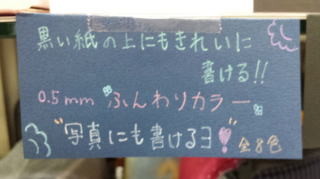 黒い紙の上にもきれいに
書ける!!
0.5mm ふんわりカラー
"写真にも書けるヨ"! 全8色